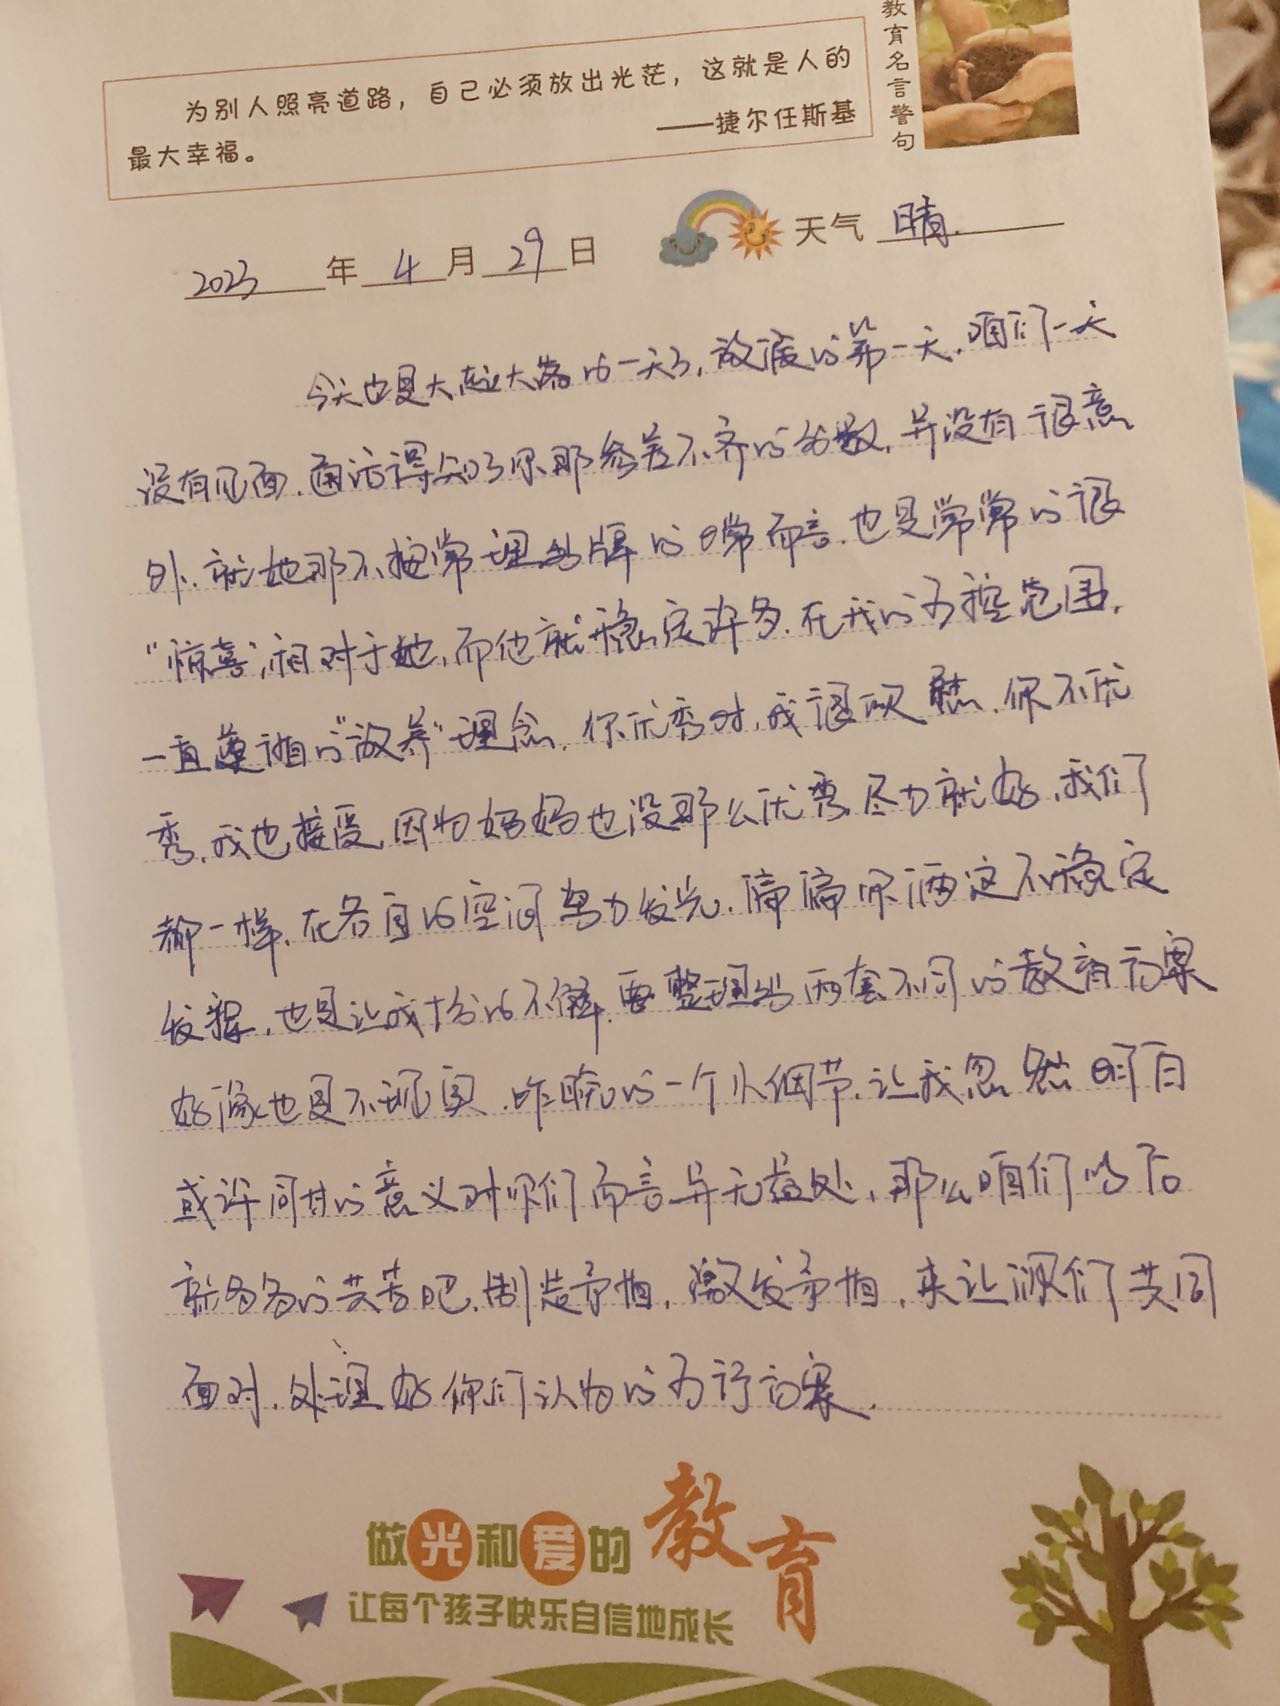 教育名言警句
为别人照亮道路，自己必须放出光茫，这就是人的
最大幸福。
——捷尔任斯基
2023年4月29日 天气 晴.
今天也是大起大落的一天了,放假的第一天.咱们一天
没有见面.通话得知了你那参差不齐的分数,并没有很意
外.就她那不按常理出牌的日常而言.也是常常的很
“惊喜”,相对于她,而他就稳定许多.在我的可控范围.
一直遵循的“放养”理念.你优秀时,我很欣慰.你不优
秀.我也接受,因为妈妈也没那么优秀.尽力就好.我们
都一样.在各自的空间努力发光.偏偏你俩这不稳定
发挥.也是让我十分的不解.要整理出两套不同的教育方案
好像也是不现实.昨晚的一个小细节.让我忽然明白
或许同甘的意义对你们而言并无益处,那么咱们以后
就多多的共苦吧.制造矛盾,激发矛盾,来让你们共同
面对.处理好你们认为的可行方案.
做光和爱的教育
让每个孩子快乐自信地成长